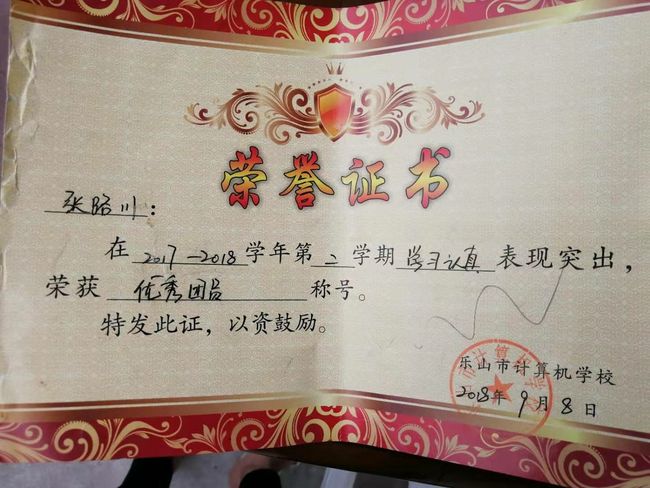 荣誉证书
张路川：
在2017-2018学年第二学期学习认真表现突出，
荣获 优秀团员 称号。
特发此证，以资鼓励。
乐山市计算机学校
2018年9月8日